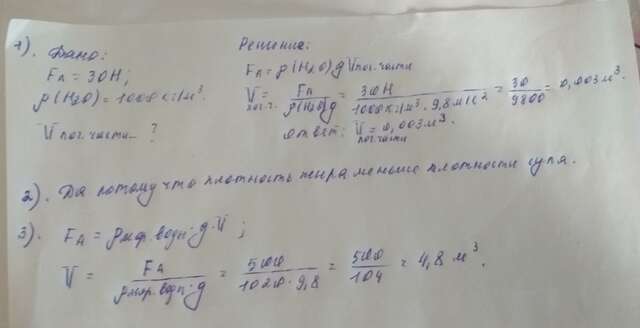 1). Дано:
Решение:
FA = 30Н;
ρ(H2O) = 1000 кг/м³.
V пог. части – ?
FA = ρ(H2O) g V пог. части
V пог. ч. = FA / ρ(H2O) g = 30Н / 1000 кг/м³ · 9,8 м/с² = 30 / 9800 = 0,003 м³.
Ответ: V пог. части = 0,003 м³.
2). Да потому что плотность жира меньше плотности супа.
3). FA = ρмор. водн. · g · V ;
V = FA / ρмор. водн. · g = 500 / 1020 · 9,8 = 500 / 104 = 4,8 м³.